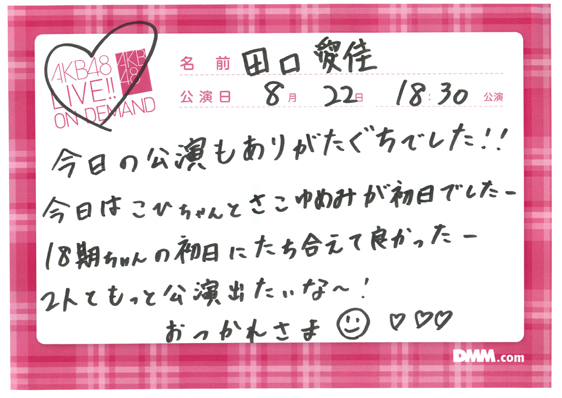 AKB48
LIVE!!
ON DEMAND
AKB
48
名前 田口愛佳
公演日 8月 22日 18:30 公演
今日の公演もありがたぐちでした!!
今日はこひちゃんとさこゆめみが初日でしたー
18期ちゃんの初日にたち合えて良かったー
2人てもっと公演出たいな〜!
おつかれさま
DMM.com